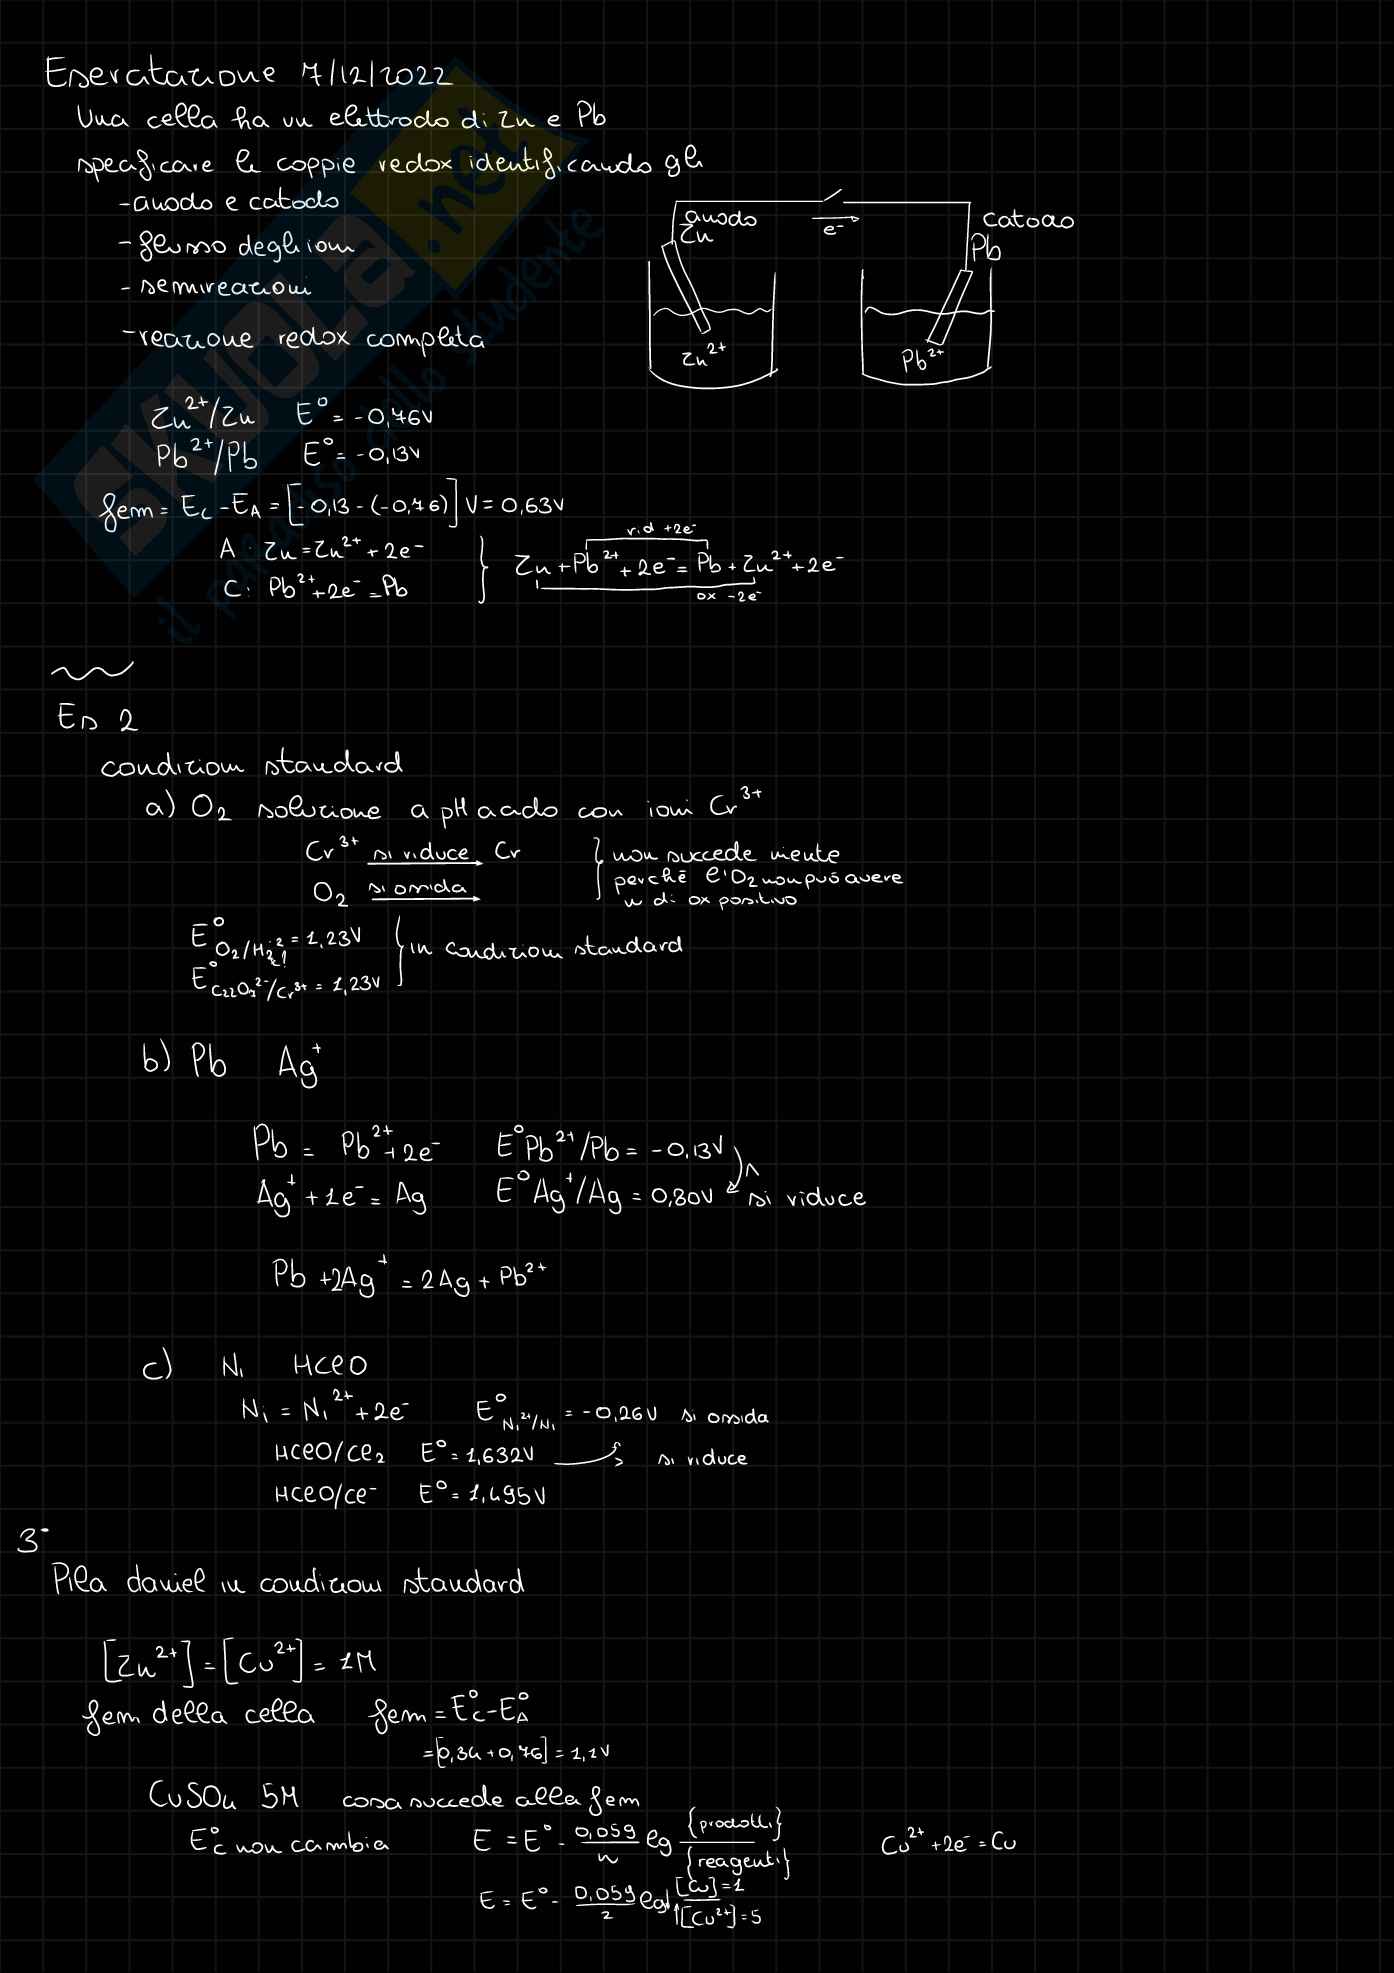 Esercitazione 7/12/2022
Una cella ha un elettrodo di Zn e Pb
specificare le coppie redox identificando gli
-anodo e catodo
-flusso degli ioni
-semireazioni
-reazione redox completa
anodo
Zn
e⁻
catodo
Pb
Zn²⁺
Pb²⁺
Zn²⁺/Zn E° = -0,76V
Pb²⁺/Pb E° = -0,13V
fem = E_C - E_A = [-0,13 - (-0,76)] V = 0,63V
A: Zn = Zn²⁺ + 2e⁻
C: Pb²⁺ + 2e⁻ = Pb
rid +2e⁻
Zn + Pb²⁺ + 2e⁻ = Pb + Zn²⁺ + 2e⁻
ox -2e⁻
Es 2
condizioni standard
a) O₂ soluzione a pH acido con ioni Cr³⁺
Cr³⁺ si riduce Cr
O₂ si ossida
non succede niente
perchè l'O₂ non può avere
n di ox positivo
E° O₂/H₂ = 1,23V
E° Cr₂O₇²⁻/Cr³⁺ = 1,23V
in condizioni standard
b) Pb Ag⁺
Pb = Pb²⁺ + 2e⁻ E°Pb²⁺/Pb = -0,13V
Ag⁺ + 1e⁻ = Ag E°Ag⁺/Ag = 0,80V si riduce
Pb + 2Ag⁺ = 2Ag + Pb²⁺
c) Ni HClO
Ni = Ni²⁺ + 2e⁻ E° Ni²⁺/Ni = -0,26V si ossida
HClO/Cl₂ E° = 1,632V si riduce
HClO/Cl⁻ E° = 1,495V
3°
Pila daniel in condizioni standard
[Zn²⁺] = [Cu²⁺] = 1M
fem della cella fem = E°_C - E°_A
= [0,34 + 0,76] = 1,1V
CuSO₄ 5M cosa succede alla fem
E°_C non cambia E = E° - 0,059/n lg {prodotti}/{reagenti} Cu²⁺ + 2e⁻ = Cu
E = E° - 0,059/2 log [Cu]=1/[Cu²⁺]=5
SKUOLA.net
il paradiso dello studente